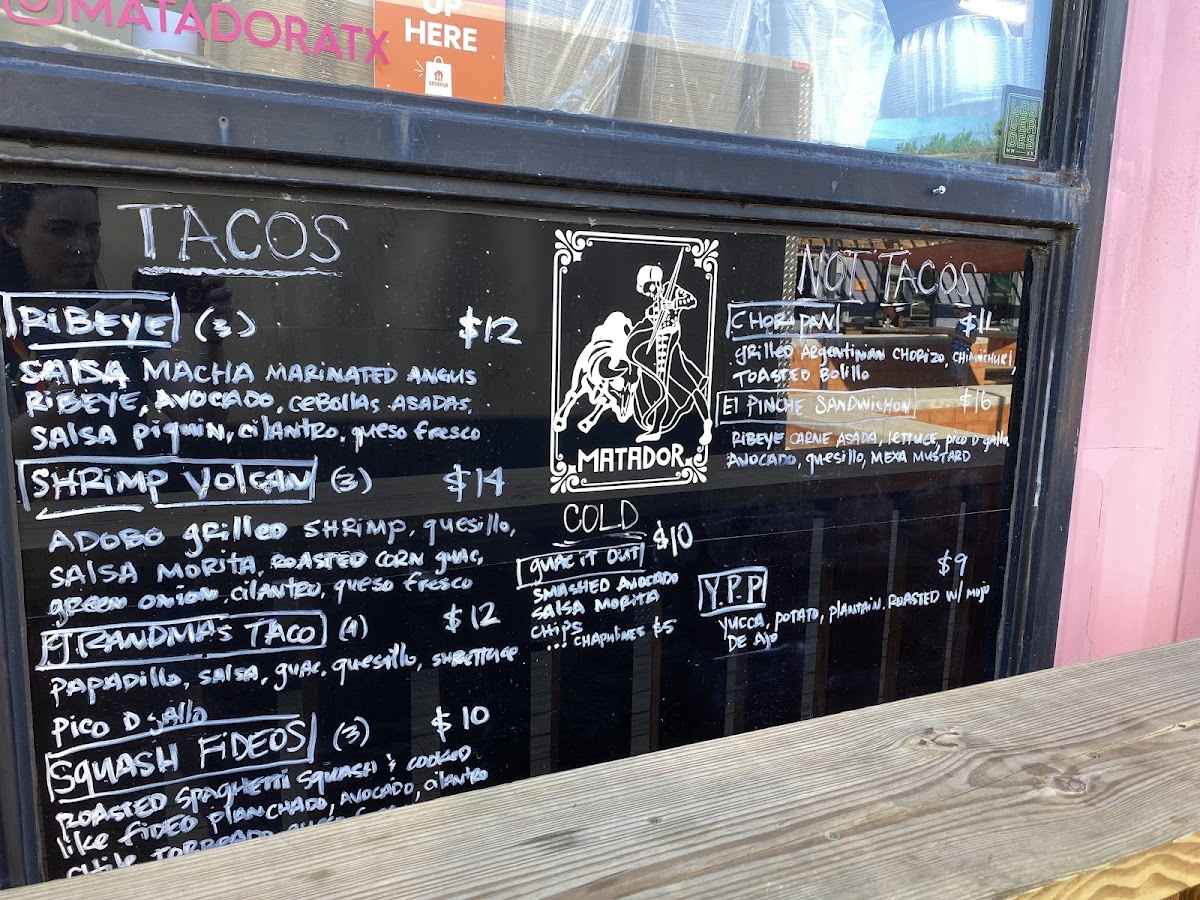 MATADORATX
UP
HERE
TACOS
RIBEYE (3) $12
SALSA MACHA MARINATED ANGUS
RIBEYE, AVOCADO, CEBOLLAS ASADAS,
SALSA PIQUIN, CILANTRO, QUESO FRESCO
SHRIMP VOLCAN (3) $14
ADOBO GRILLED SHRIMP, QUESILLO,
SALSA MORITA, ROASTED CORN GUAC,
GREEN ONION, CILANTRO, QUESO FRESCO
GRANDMA'S TACO $12
PAPADILLO, SALSA, GUAC, QUESILLO,
PICO D GALLO
SQUASH FIDEOS (3) $10
ROASTED SPAGHETTI SQUASH & COOKED
LIKE FIDEO PLANCHADO, AVOCADO, CILANTRO
CHILE TOREADO
MATADOR
COLD
GUAC IT OUT $10
SMASHED AVOCADO
SALSA MORITA
CHIPS
... CHAPULINES $5
NOT TACOS
CHORIPAN $11
GRILLED ARGENTINIAN CHORIZO, CHIMICHURI,
TOASTED BOLILLO
El PINCHE SANDWICHON $16
RIBEYE CARNE ASADA, LETTUCE, PICO D GALLO,
AVOCADO, QUESILLO, MEXA MUSTARD
Y.P.P $9
YUCCA, POTATO, PLANTAIN, ROASTED W/ MOJO
DE AJO